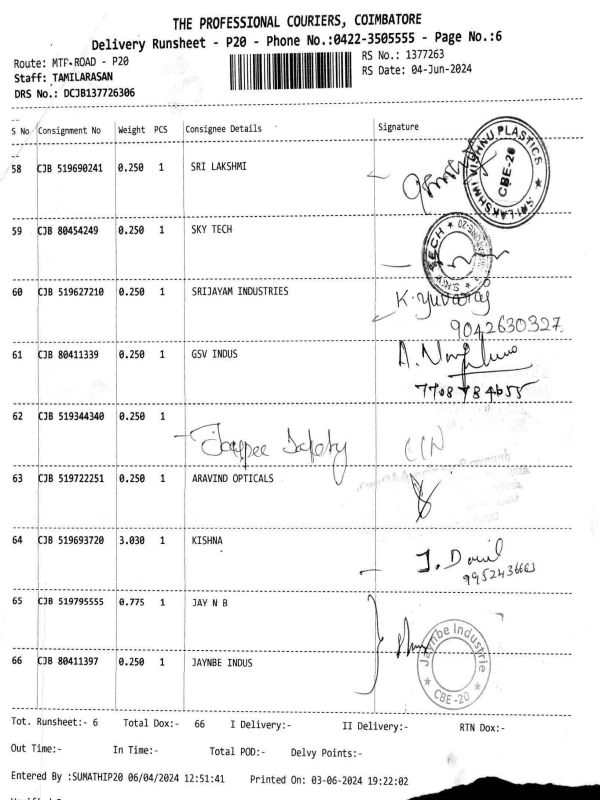 THE PROFESSIONAL COURIERS, COIMBATORE
Delivery Runsheet - P20 - Phone No.:0422-3505555 - Page No.:6
Route: MTP-ROAD - P20
RS No.: 1377263
Staff: TAMILARASAN
RS Date: 04-Jun-2024
DRS No.: DCJB137726306
S No Consignment No Weight PCS Consignee Details Signature
58 CJB 519690241 0.250 1 SRI LAKSHMI
SRI LAKSHMI VISHNU PLASTICS CBE-20
59 CJB 80454249 0.250 1 SKY TECH
60 CJB 519627210 0.250 1 SRIJAYAM INDUSTRIES K. Yuvaraj
9042630327
61 CJB 80411339 0.250 1 GSV INDUS
62 CJB 519344340 0.250 1
Jaypee Safety
63 CJB 519722251 0.250 1 ARAVIND OPTICALS
64 CJB 519693720 3.030 1 KISHNA
65 CJB 519795555 0.775 1 JAY N B
66 CJB 80411397 0.250 1 JAYNBE INDUS
Jaynbe Industrie CBE-20
Tot. Runsheet:- 6 Total Dox:- 66 I Delivery:- II Delivery:- RTN Dox:-
Out Time:- In Time:- Total POD:- Delvy Points:-
Entered By :SUMATHIP20 06/04/2024 12:51:41 Printed On: 03-06-2024 19:22:02